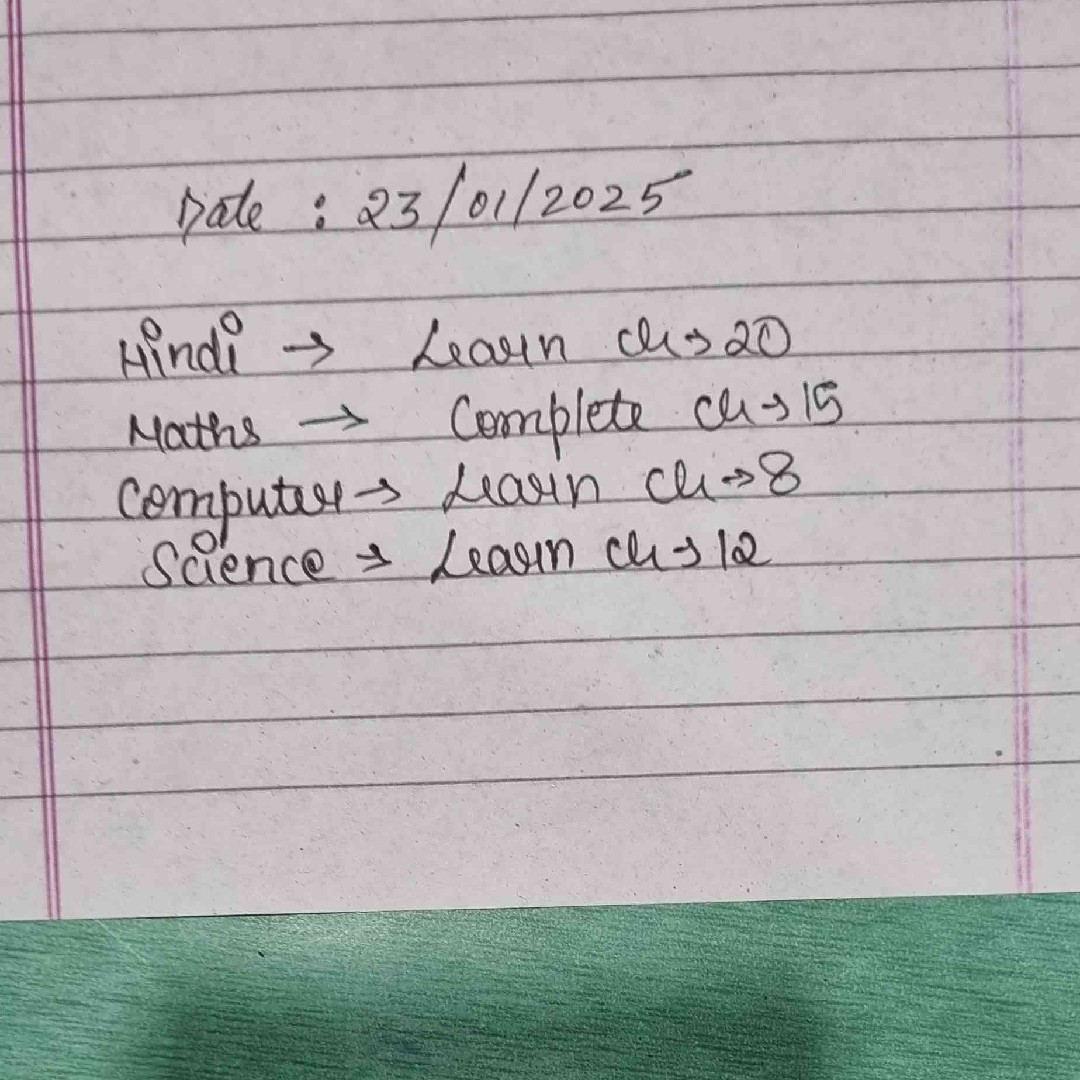 Date : 23/01/2025
Hindi → Learn ch → 20
Maths → Complete ch → 15
Computer → Learn ch → 8
Science → Learn ch → 12